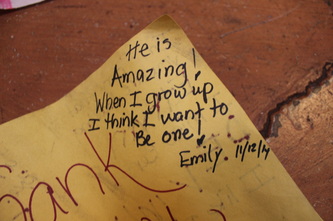 He is
Amazing!
When I grow up
I think I want to
Be one!
Emily 11/12/14